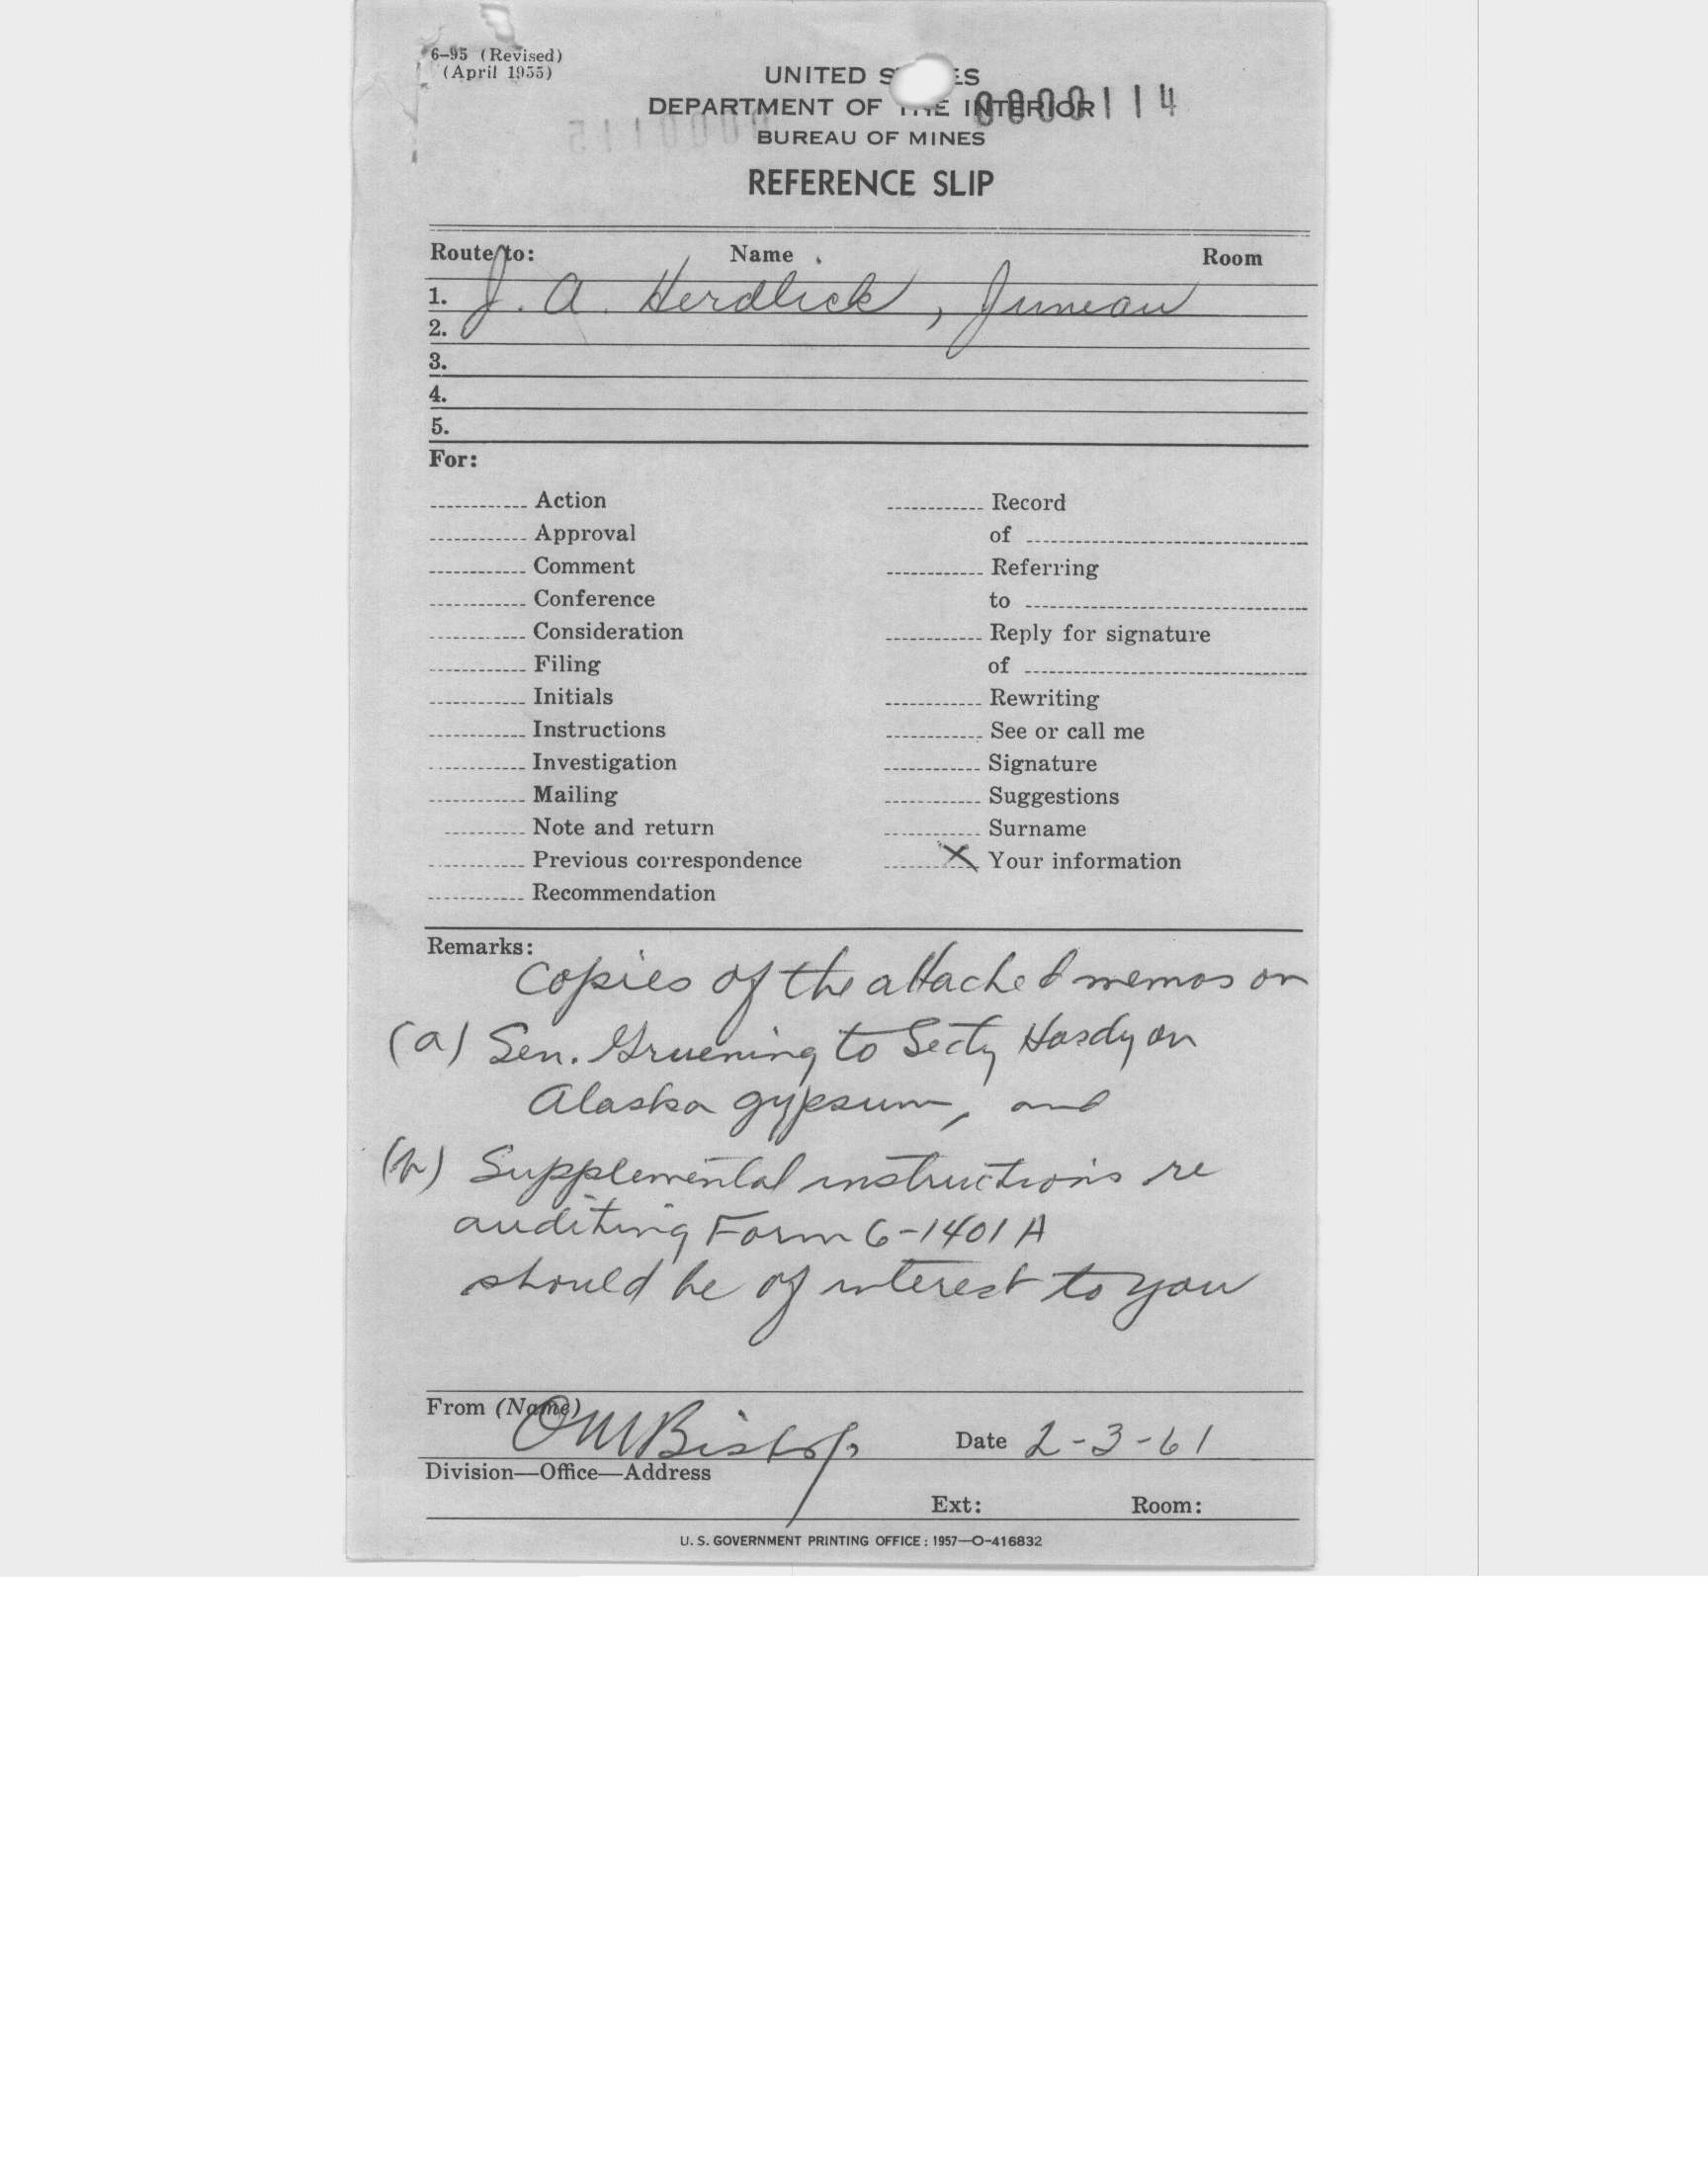 6-95 (Revised)
(April 1955)
UNITED S ES
DEPARTMENT OF THE INTERIOR
0000114
0000115
BUREAU OF MINES
REFERENCE SLIP
Route to: Name Room
1. J. A. Herdlick, Juneau
2.
3.
4.
5.
For:
Action
Approval
Comment
Conference
Consideration
Filing
Initials
Instructions
Investigation
Mailing
Note and return
Previous correspondence
Recommendation
Record
of
Referring
to
Reply for signature
of
Rewriting
See or call me
Signature
Suggestions
Surname
X Your information
Remarks:
Copies of the attached memos on
(a) Sen. Gruening to Secty Hardy on
Alaska gypsum, and
(b) Supplemental instructions re
auditing Form 6-1401 A
should be of interest to you
From (Name) OM Bishop Date 2-3-61
Division—Office—Address
Ext: Room:
U. S. GOVERNMENT PRINTING OFFICE: 1957—O-416832